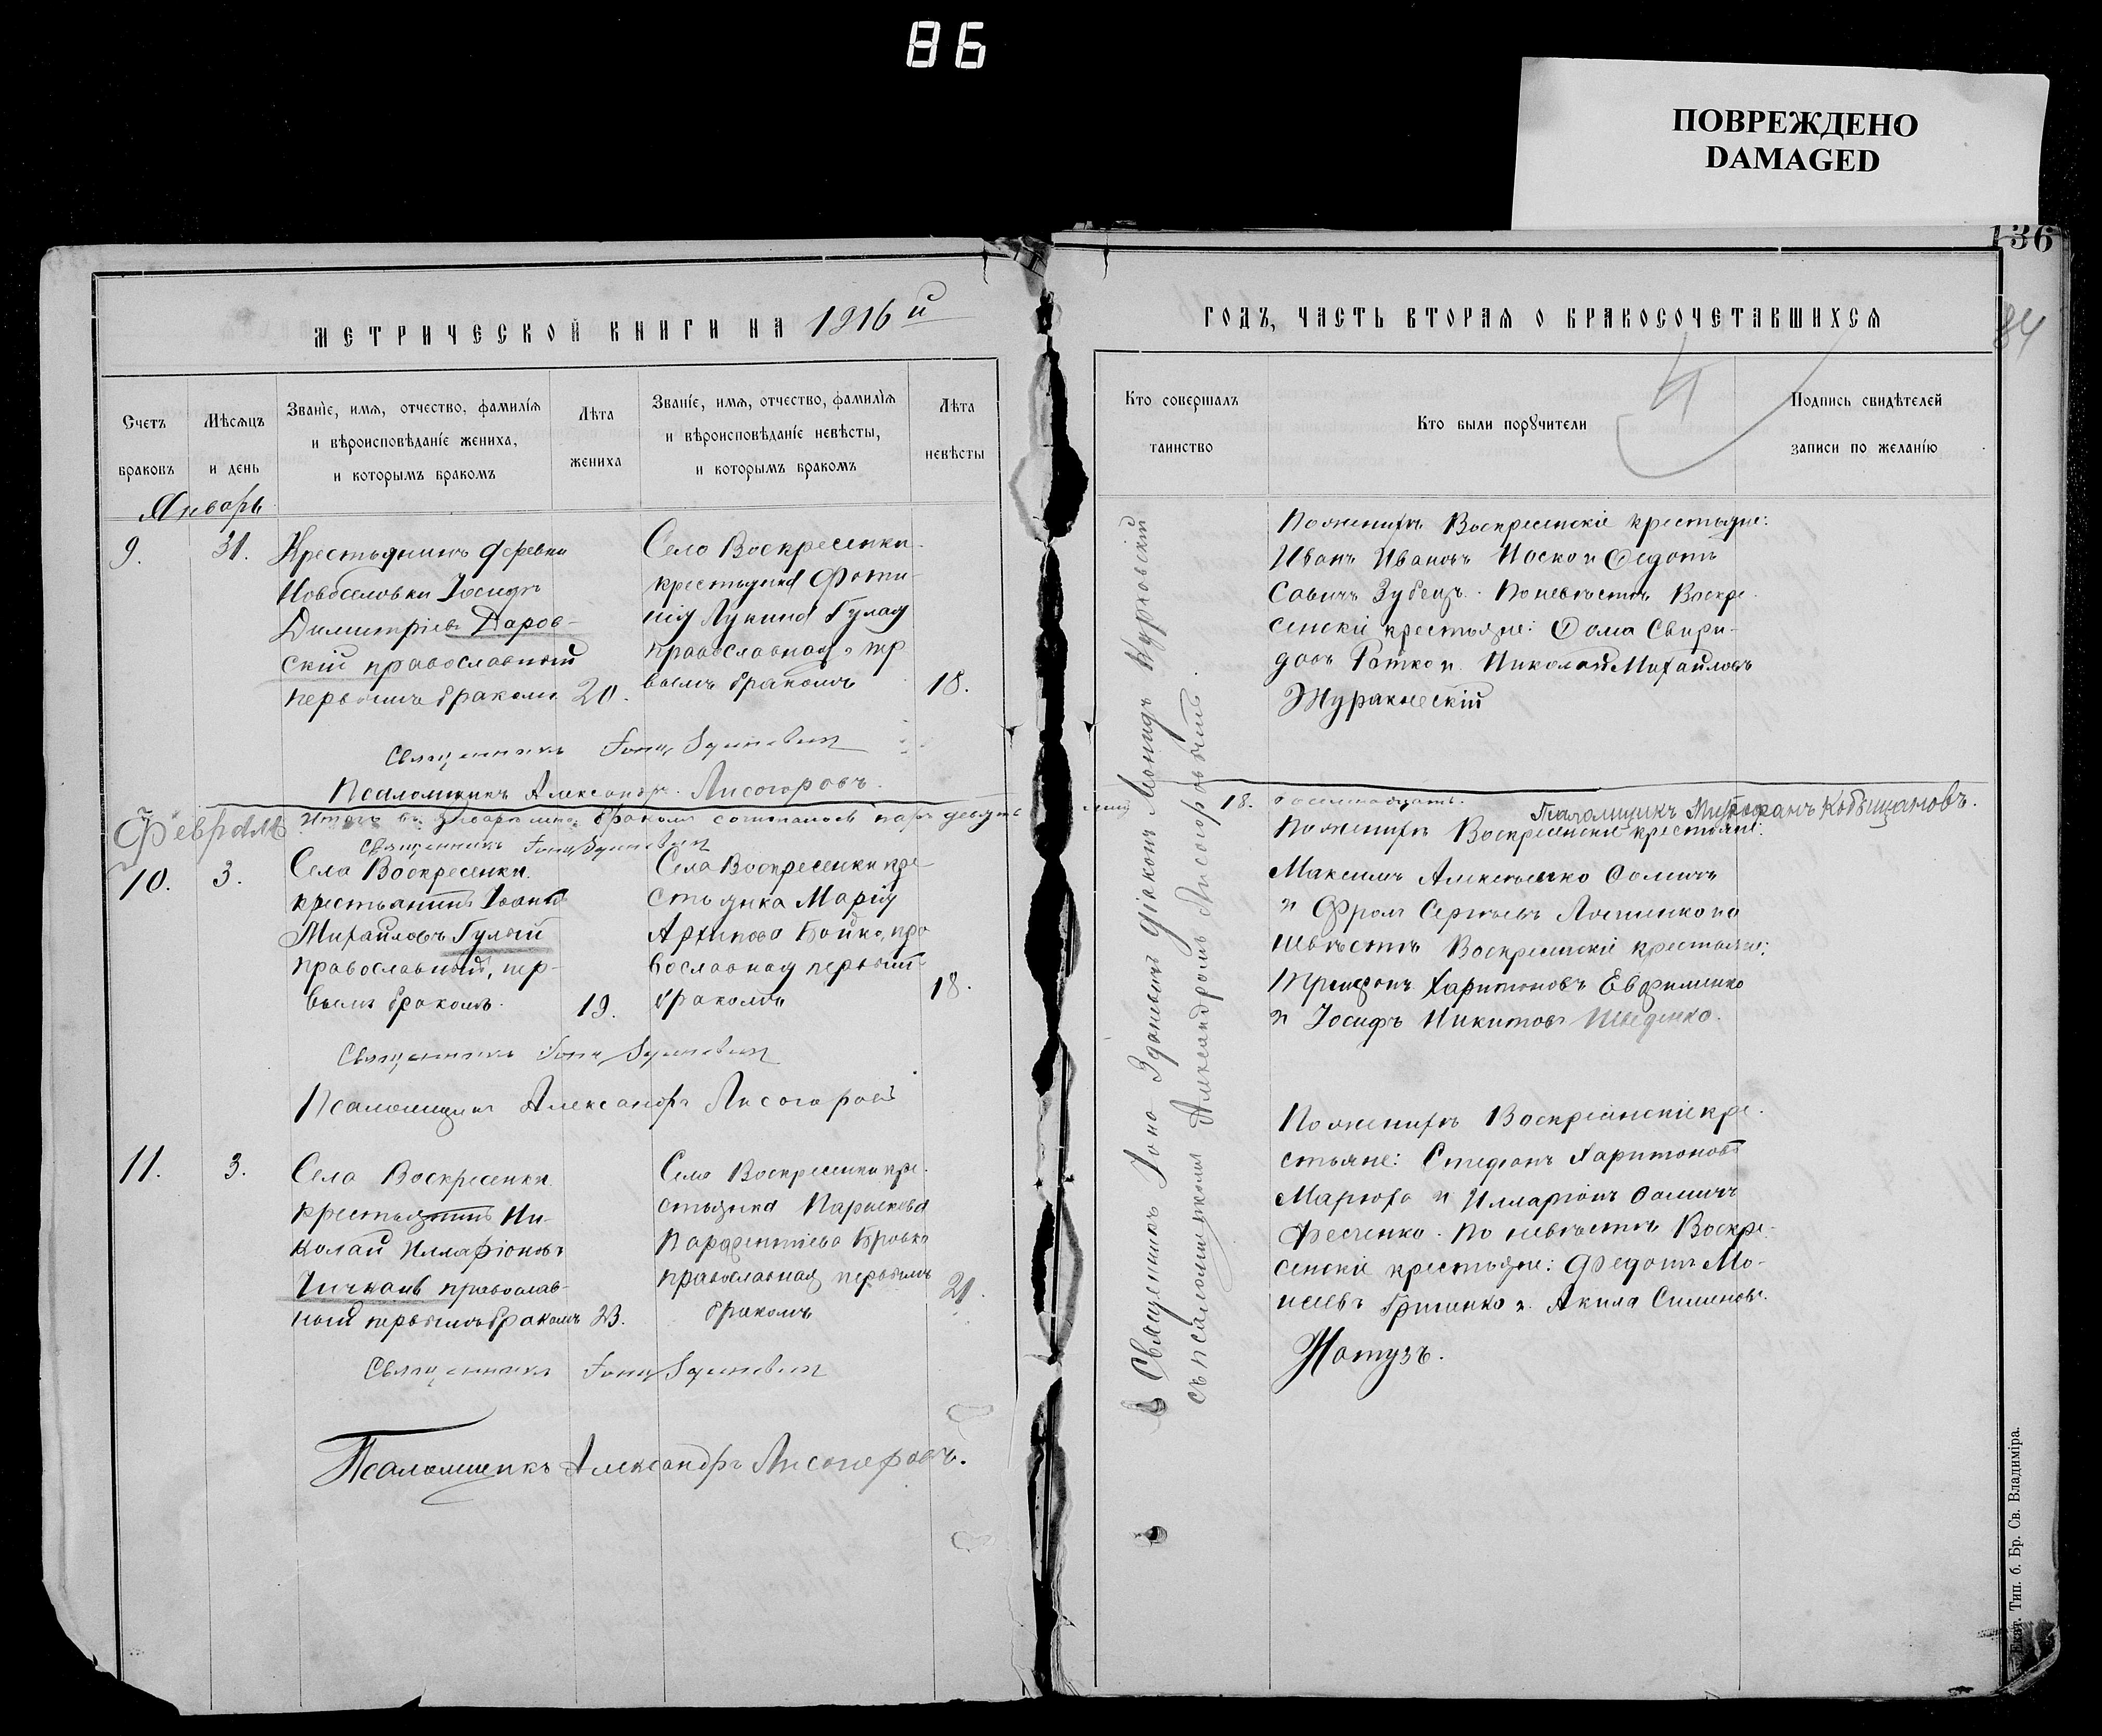 86
ПОВРЕЖДЕНО
DAMAGED
136
84
МЕТРИЧЕСКОЙ КНИГИ НА 1916 й
Счетъ браковъ
Мѣсяцъ и день
Званіе, имя, отчество, фамилія и вѣроисповѣданіе жениха, и которымъ бракомъ
Лѣта жениха
Званіе, имя, отчество, фамилія и вѣроисповѣданіе невѣсты, и которымъ бракомъ
Лѣта невѣсты
Январь
9.
31.
Крестьянинъ деревни
Новоселовки Іосифъ
Димитріевъ Даров-
скій православный
первымъ бракомъ
20.
Село Воскресенки
крестьянка Фоти-
нія Лукина Гулая
православная пер
вымъ бракомъ
18.
Священникъ Іона
Псаломщикъ Александръ Лисогоровъ.
Февраль
Итого въ Январѣ бракомъ сочиталось паръ девять
Священникъ Іона
10.
3.
Села Воскресенки
крестьянинъ Іоаннъ
Михайловъ Гулый
православный, пер-
вымъ бракомъ.
19.
Села Воскресенки кре-
стьянка Марія
Архипова Бойко, пра
вославная первымъ
бракомъ
18.
Священникъ Іона
Псаломщикъ Александръ Лисогоровъ
11.
3.
Села Воскресенки
крестьянинъ Ни-
колай Илларіоновъ
православ-
ный первымъ бракомъ
23.
Села Воскресенки кре-
стьянка Параскева
Парфентіева Бровко
православная первымъ
бракомъ
21.
Священникъ Іона
Псаломщикъ Александръ Лисогоровъ.
ГОДЪ, ЧАСТЬ ВТОРАЯ О БРАКОСОЧЕТАВШИХСЯ
Кто совершалъ таинство
Кто были поручители
Подпись свидѣтелей записи по желанію
Священникъ Іона Здановичъ діакономъ
съ псаломщикомъ Александромъ Лисогоровымъ.
По женихѣ Воскресенскіе крестьяне:
Иванъ Ивановъ Носко и Федотъ
Савичъ Зубецъ. По невѣстѣ Воскре-
сенскіе крестьяне: Фома Свири-
довъ Гатко и Николай Михайловъ
Жураковскій
18. восемнадцать.
Псаломщикъ Митрофанъ Кобыщановъ.
По женихѣ Воскресенскіе крестьяне:
Максимъ Алексѣенко Фомичъ
и Фролъ Сергѣевъ по
невѣстѣ Воскресенскіе крестьяне:
Трифонъ Харитоновъ Евфименко
и Іосифъ Никитовъ Шведенко.
По женихѣ Воскресенскіе кре-
стьяне: Стефанъ Харитоновъ
Марюха и Илларіонъ Фомичъ
Фесенко. По невѣстѣ Воскре-
сенскіе крестьяне: Федотъ Мо-
исеевъ Гриценко и Акила Симеоновъ
Хатузъ.
Тип. б. Бр. Св. Владиміра.